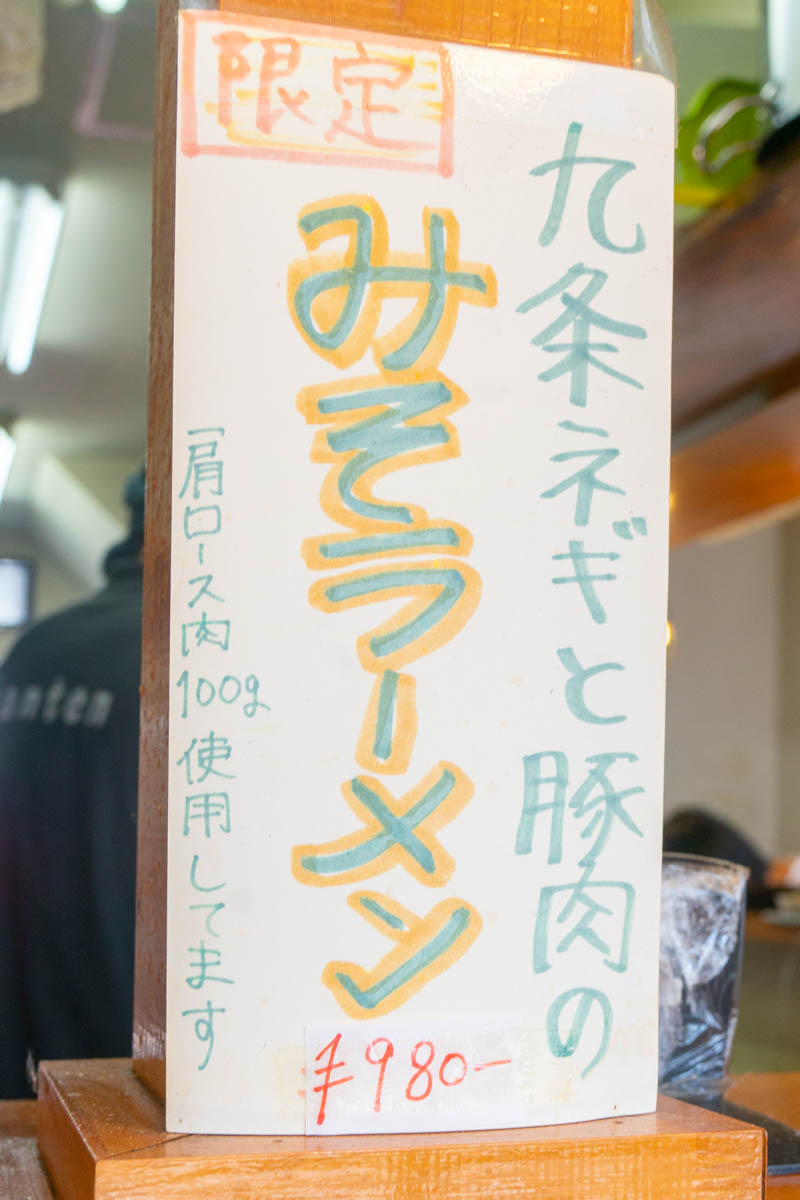 限定
九条ネギと豚肉の
みそラーメン
肩ロース肉100g使用してます
¥980-
anten